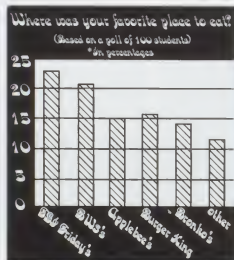 Where was your favorite place to eat?
(Based on a poll of 100 students)
*In percentages
25
20
15
10
5
0
Friday's
Applebee's
Burger King
Bronko's
other